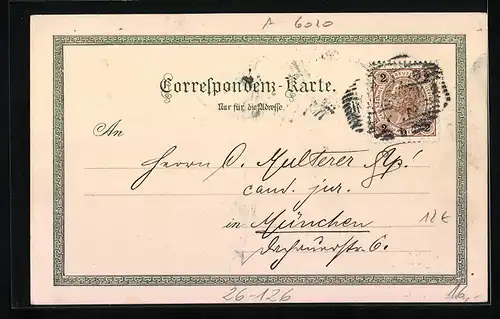 A 6020
Correspondenz-Karte.
Nur für die Adresse.
2 2
An
Herrn O. Multerer
cand. jur.
in München
Dachauerstr. 6.
12 €
26-126
16,-